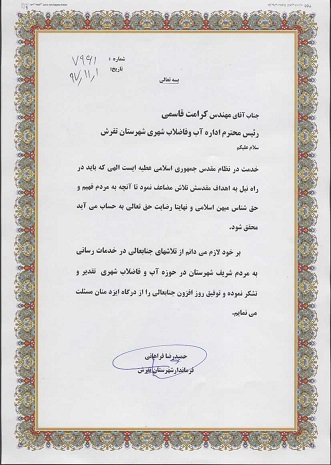 شماره : ۷۹۹۱
تاریخ: ۹۷,۱۱,۱
بسمه تعالی
جناب آقای مهندس کرامت قاسمی
رئیس محترم اداره آب وفاضلاب شهری شهرستان تفرش
سلام علیکم
خدمت در نظام مقدس جمهوری اسلامی عطیه ایست الهی که باید در
راه نیل به اهداف مقدسش تلاش مضاعف نمود تا آنچه به مردم فهیم و
حق شناس میهن اسلامی و نهایتا رضایت حق تعالی به حساب می آید
محقق شود.
بر خود لازم می دانم از تلاشهای جنابعالی در خدمات رسانی
به مردم شریف شهرستان در حوزه آب و فاضلاب شهری تقدیر و
تشکر نموده و توفیق روز افزون جنابعالی را از درگاه ایزد منان مسئلت
می نمایم.
حمیدرضا فراهانی
فرماندار شهرستان تفرش